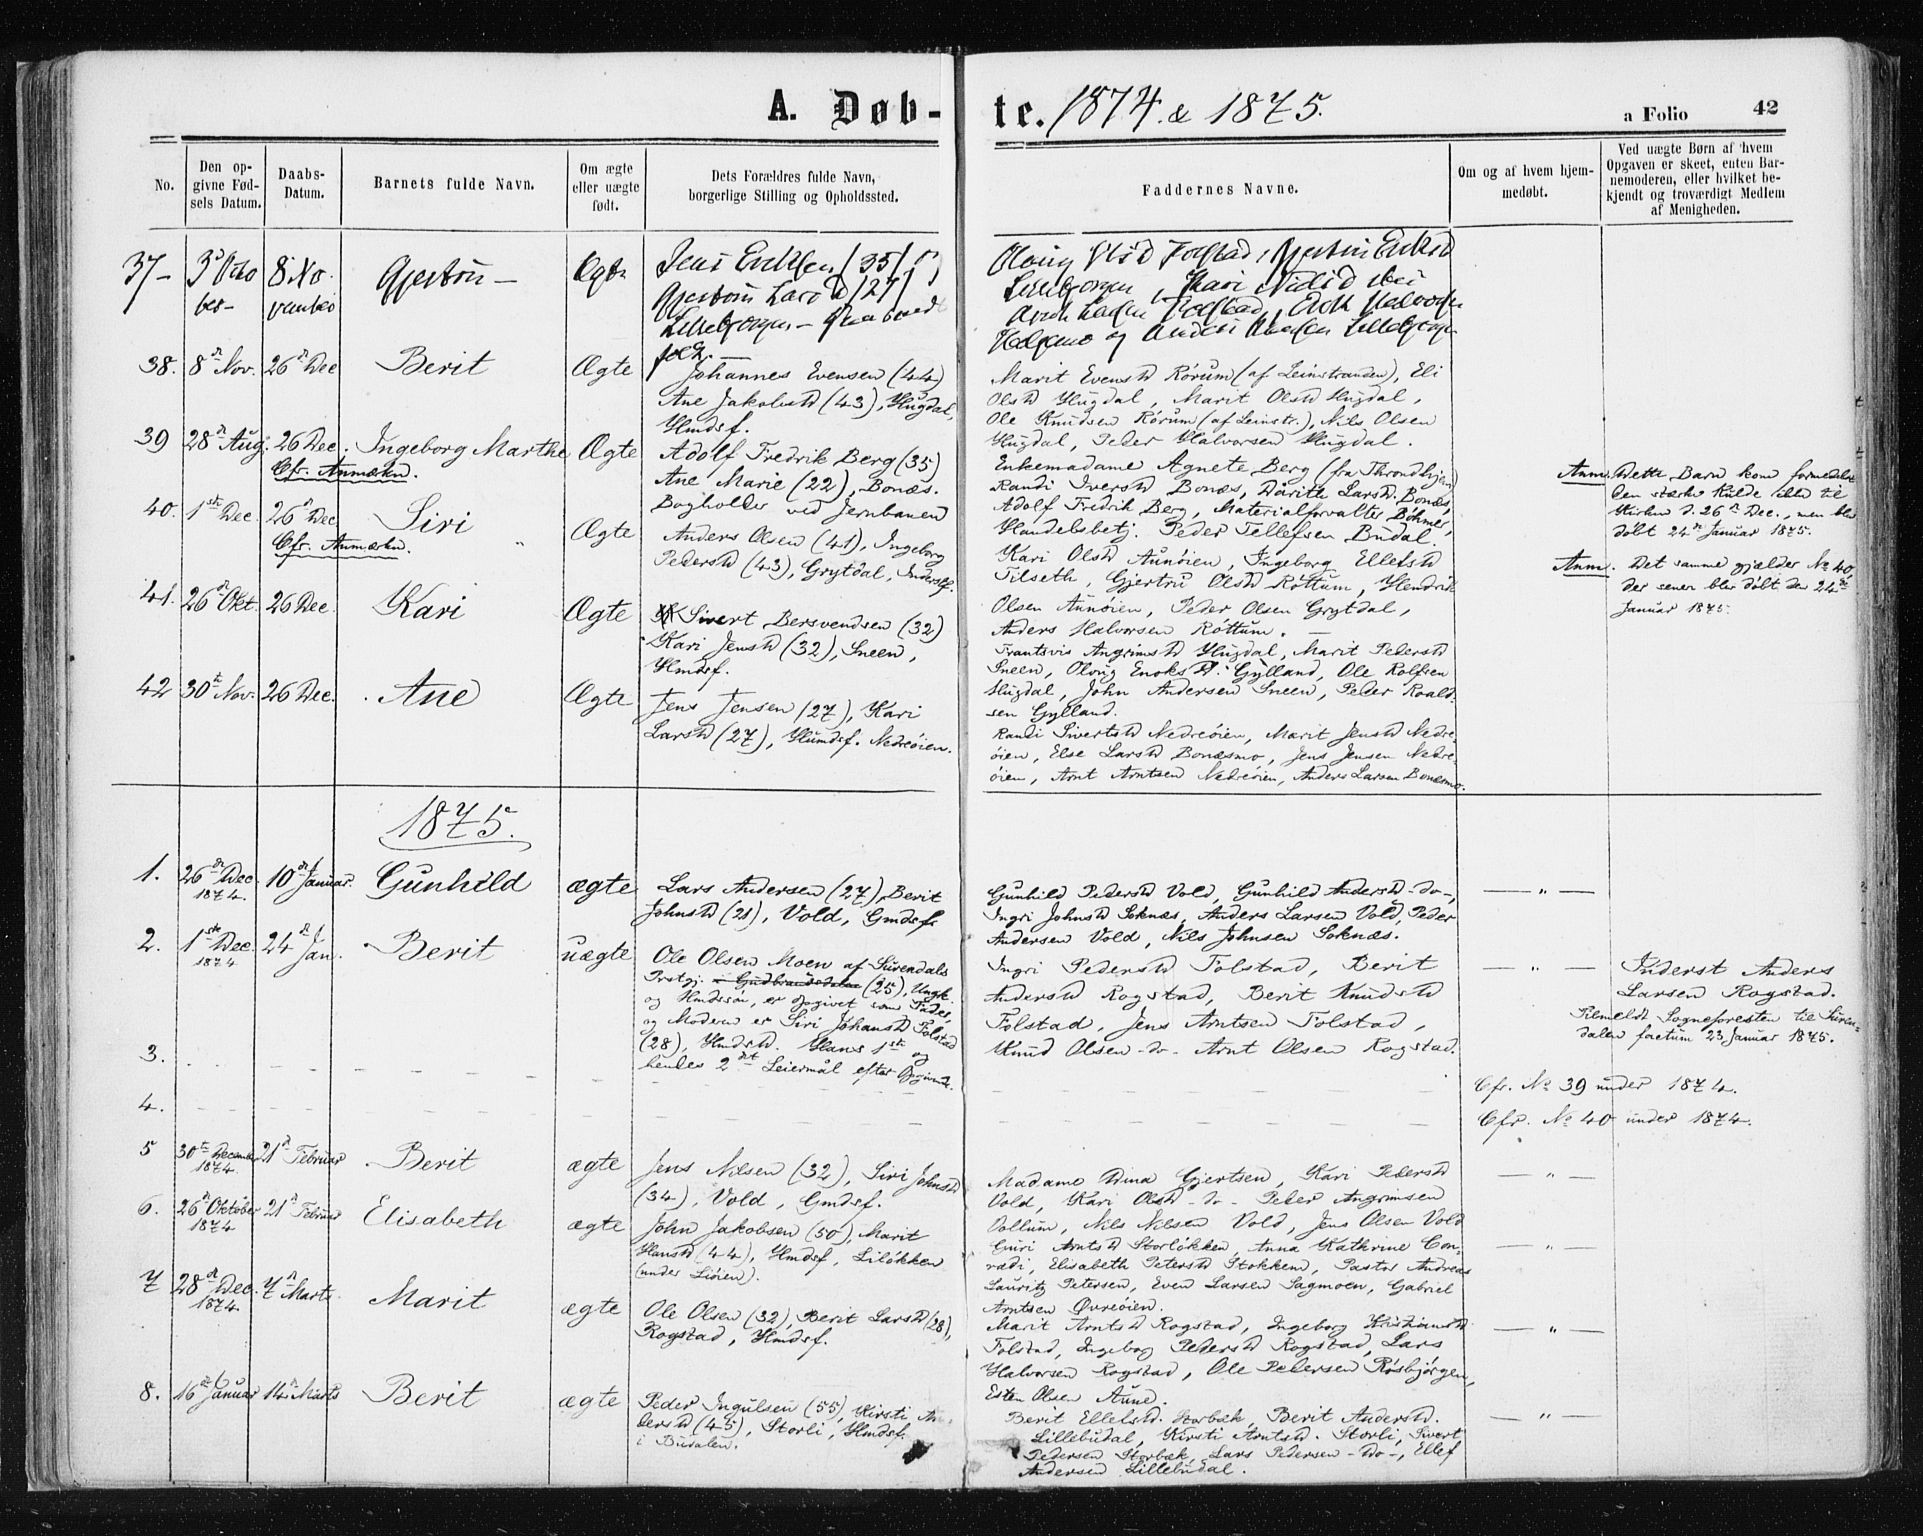 A. Døb-te. 1874 & 1875.
a Folio 42
No.
Den opgivne Fødsels Datum.
Daabs-Datum.
Barnets fulde Navn.
Om ægte eller uægte født.
Dets Forældres fulde Navn, borgerlige Stilling og Opholdssted.
Faddernes Navne.
Om og af hvem hjemmedøbt.
Ved uægte Børn af hvem Opgaven er skeet, enten Barnemoderen, eller hvilket bekjendt og troværdigt Medlem af Menigheden.
37-
Ægte
Lillebjorgen
38. 8d Nov. 26d Dec Berit Ægte
Johannes Evensen (44)
Ane Jakobsd (43), Hugdal,
Hmdsf.
Marit Evensd Rørum (af Leinstranden), Eli
Olsd Hugdal, Marit Olsd Hugdal,
Ole Knudsen Rørum (af Leinstr.), Nils Olsen
Hugdal, Peder Halvorsen Hugdal.
39 28d Aug. 26 Dec. Ingeborg Marthe Ægte
Cfr. Anmærkn.
Adolf Fredrik Berg (35)
Ane Marie (22), Bonæs.
Bogholder ved Jernbanen
Enkemadame Agnete Berg (fra Throndhjem)
Randi Iversd Bonæs, Dårithe Larsd. Bonæs,
Adolf Fredrik Berg, Materialforvalter Böhmer,
Handelsbetj. Peder Tellefsen Budal.
Anm. Dette Barn kom formedelst
den stærke Kulde ikke til
Kirken d. 26d Dec., men blev
døbt 24d Januar 1875.
40. 1ste Dec. 26d Dec Siri Ægte
Cfr. Anmærkn.
Anders Olsen (41), Ingeborg
Pedersd (43), Grytdal, Inderstf.
Kari Olsd Aunøien, Ingeborg Ellefsd
Tilseth, Gjertru Olsd Røttum, Hendrik
Olsen Aunøien, Peder Olsen Grytdal,
Anders Halvorsen Røttum.
Anm. Det samme gjælder No 40,
der senere blev døbt den 24de
Januar 1875.
41. 26d Okt. 26 Dec. Kari Ægte
Sivert Bersvendsen (32)
Kari Jensd (32), Sneen,
Hmdsf.
Angrimsd Hugdal, Marit Pedersd
Sneen, Olaug Enoksd. Gylland, Ole Rolfsen
Hugdal, John Andersen Sneen, Peder Roald-
sen Gylland.
42 30t Nov. 26 Dec. Ane Ægte
Jens Jensen (27), Kari
Larsd (27), Humdsf. Nedreøien.
Randi Sivertsd Nedreøien, Marit Jensd Nedre-
øien, Else Larsd Bonæsmo, Jens Jensen Nedre-
øien, Arnt Arntsen Nedreøien, Anders Larsen Bonæsmo.
1875.
1. 26d Dec. 1874. 10d Januar. Gunhild ægte
Lars Andersen (27), Berit
Johnsd (21), Vold, Gmdsf.
Gunhild Pedersd Vold, Gunhild Andersd -do-,
Ingri Johnsd Soknæs, Anders Larsen Vold, Peder
Andersen Vold, Nils Johnsen Soknæs.
— " —
2. 1ste Dec. 1874 24d Jan. Berit uægte
Ole Olsen Moen af Surendals
Prstgj. i Gudbrandsdalen (25), Ungk.
og Hmdssøn, er opgivet som Fader,
og Moderen er Siri Johansd Folstad
(28), Hmdsd. Hans 1ste og
hendes 2det Leiermål efter Opgivende.
Ingri Pedersd Folstad, Berit
Andersd Rogstad, Berit Knudsd
Folstad, Jens Arntsen Folstad,
Knud Olsen -do- Arnt Olsen Rogstad.
— " —
Inderst Anders
Larsen Rogstad.
Tilmeldt Sognepresten til Suren-
dalen factum 23 Januar 1875.
3. Cfr. No 39 under 1874.
4. Cfr. No 40 under 1874.
5 30te December 1874. 21d Februar Berit ægte
Jens Nilsen (32), Siri Johnsd
(34), Vold, Gmdsf.
Madame Dina Gjertsen, Kari Pedersd
Vold, Kari Olsd -do- Peder Angrimsen
Vollum, Nils Nilsen Vold, Jens Olsen Vold
— " —
6. 26d Oktober 1874. 21d Februar Elisabeth ægte
John Jakobsen (50), Marit
Hansd (44), Hmdsf, Liløkken
(under Liøien).
Guri Arntsd Storløkken, Anna Kathrine Con-
radi, Elisabeth Petersd Stokken, Pastor Andreas
Lauritz Petersen, Even Larsen Sagmoen, Gabriel
Arntsen Øvreøien.
— " —
7 28d Dec. 1874. 7d Marts. Marit ægte
Ole Olsen (32), Berit Larsd (28),
Rogstad, Hmdsf.
Marit Arntsd Rogstad, Ingeborg Kristiansd
Folstad, Ingeborg Pedersd Rogstad, Lars
Halvorsen Rogstad, Ole Pedersen Røsbjørgen,
Esten Olsen Aune.
— " —
8. 16d Januar 14d Marts Berit ægte
Peder Ingulsen (55), Kirsti An-
dersd (45), Storli, Hmdsf.
i Budalen.
Berit Ellefsd. Storbæk, Berit Andersd.
Lillebudal, Kirsti Arntsd. Storli, Sivert
Pedersen Storbæk, Lars Pedersen -do-, Ellef
Andersen Lillebudal.
— " —